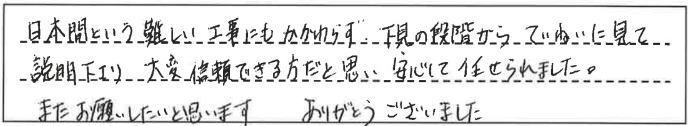 日本間という難しい工事にもかかわらず、下見の段階からていねいに見て
説明下さり、大変信頼できる方だと思い、安心して任せられました。
またお願いしたいと思います　ありがとうございました